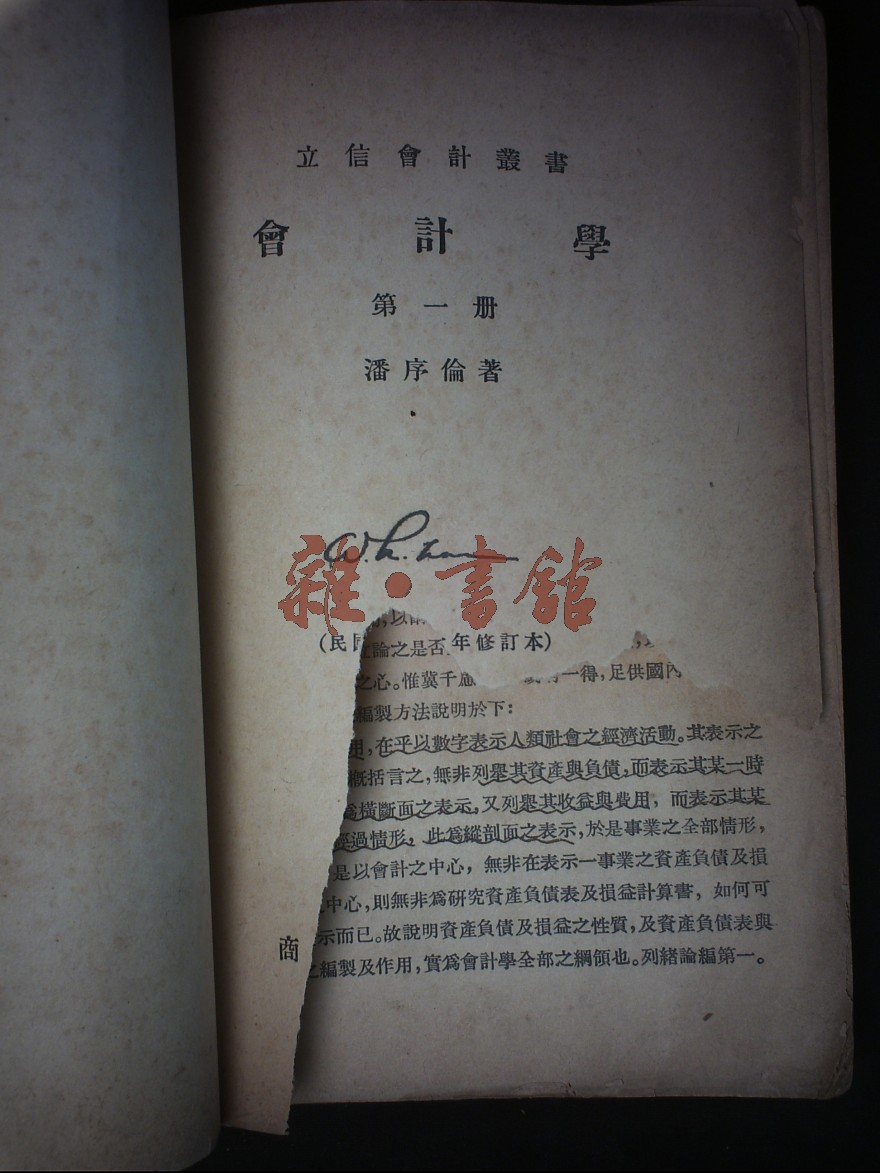 立信會計叢書
會計學
第一册
潘序倫著
W. L.
雜·書館
(民 年修訂本)
論之是否
之心。惟冀千慮 一得,足供國內
編製方法說明於下:
用,在乎以數字表示人類社會之經濟活動。其表示之
概括言之,無非列舉其資產與負債,而表示其某一時
爲橫斷面之表示,又列舉其收益與費用,而表示其某
經過情形,此爲縱剖面之表示,於是事業之全部情形,
是以會計之中心,無非在表示一事業之資產負債及損
中心,則無非爲研究資產負債表及損益計算書,如何可
示而已。故說明資產負債及損益之性質,及資產負債表與
商
之編製及作用,實爲會計學全部之綱領也。列緒論編第一。